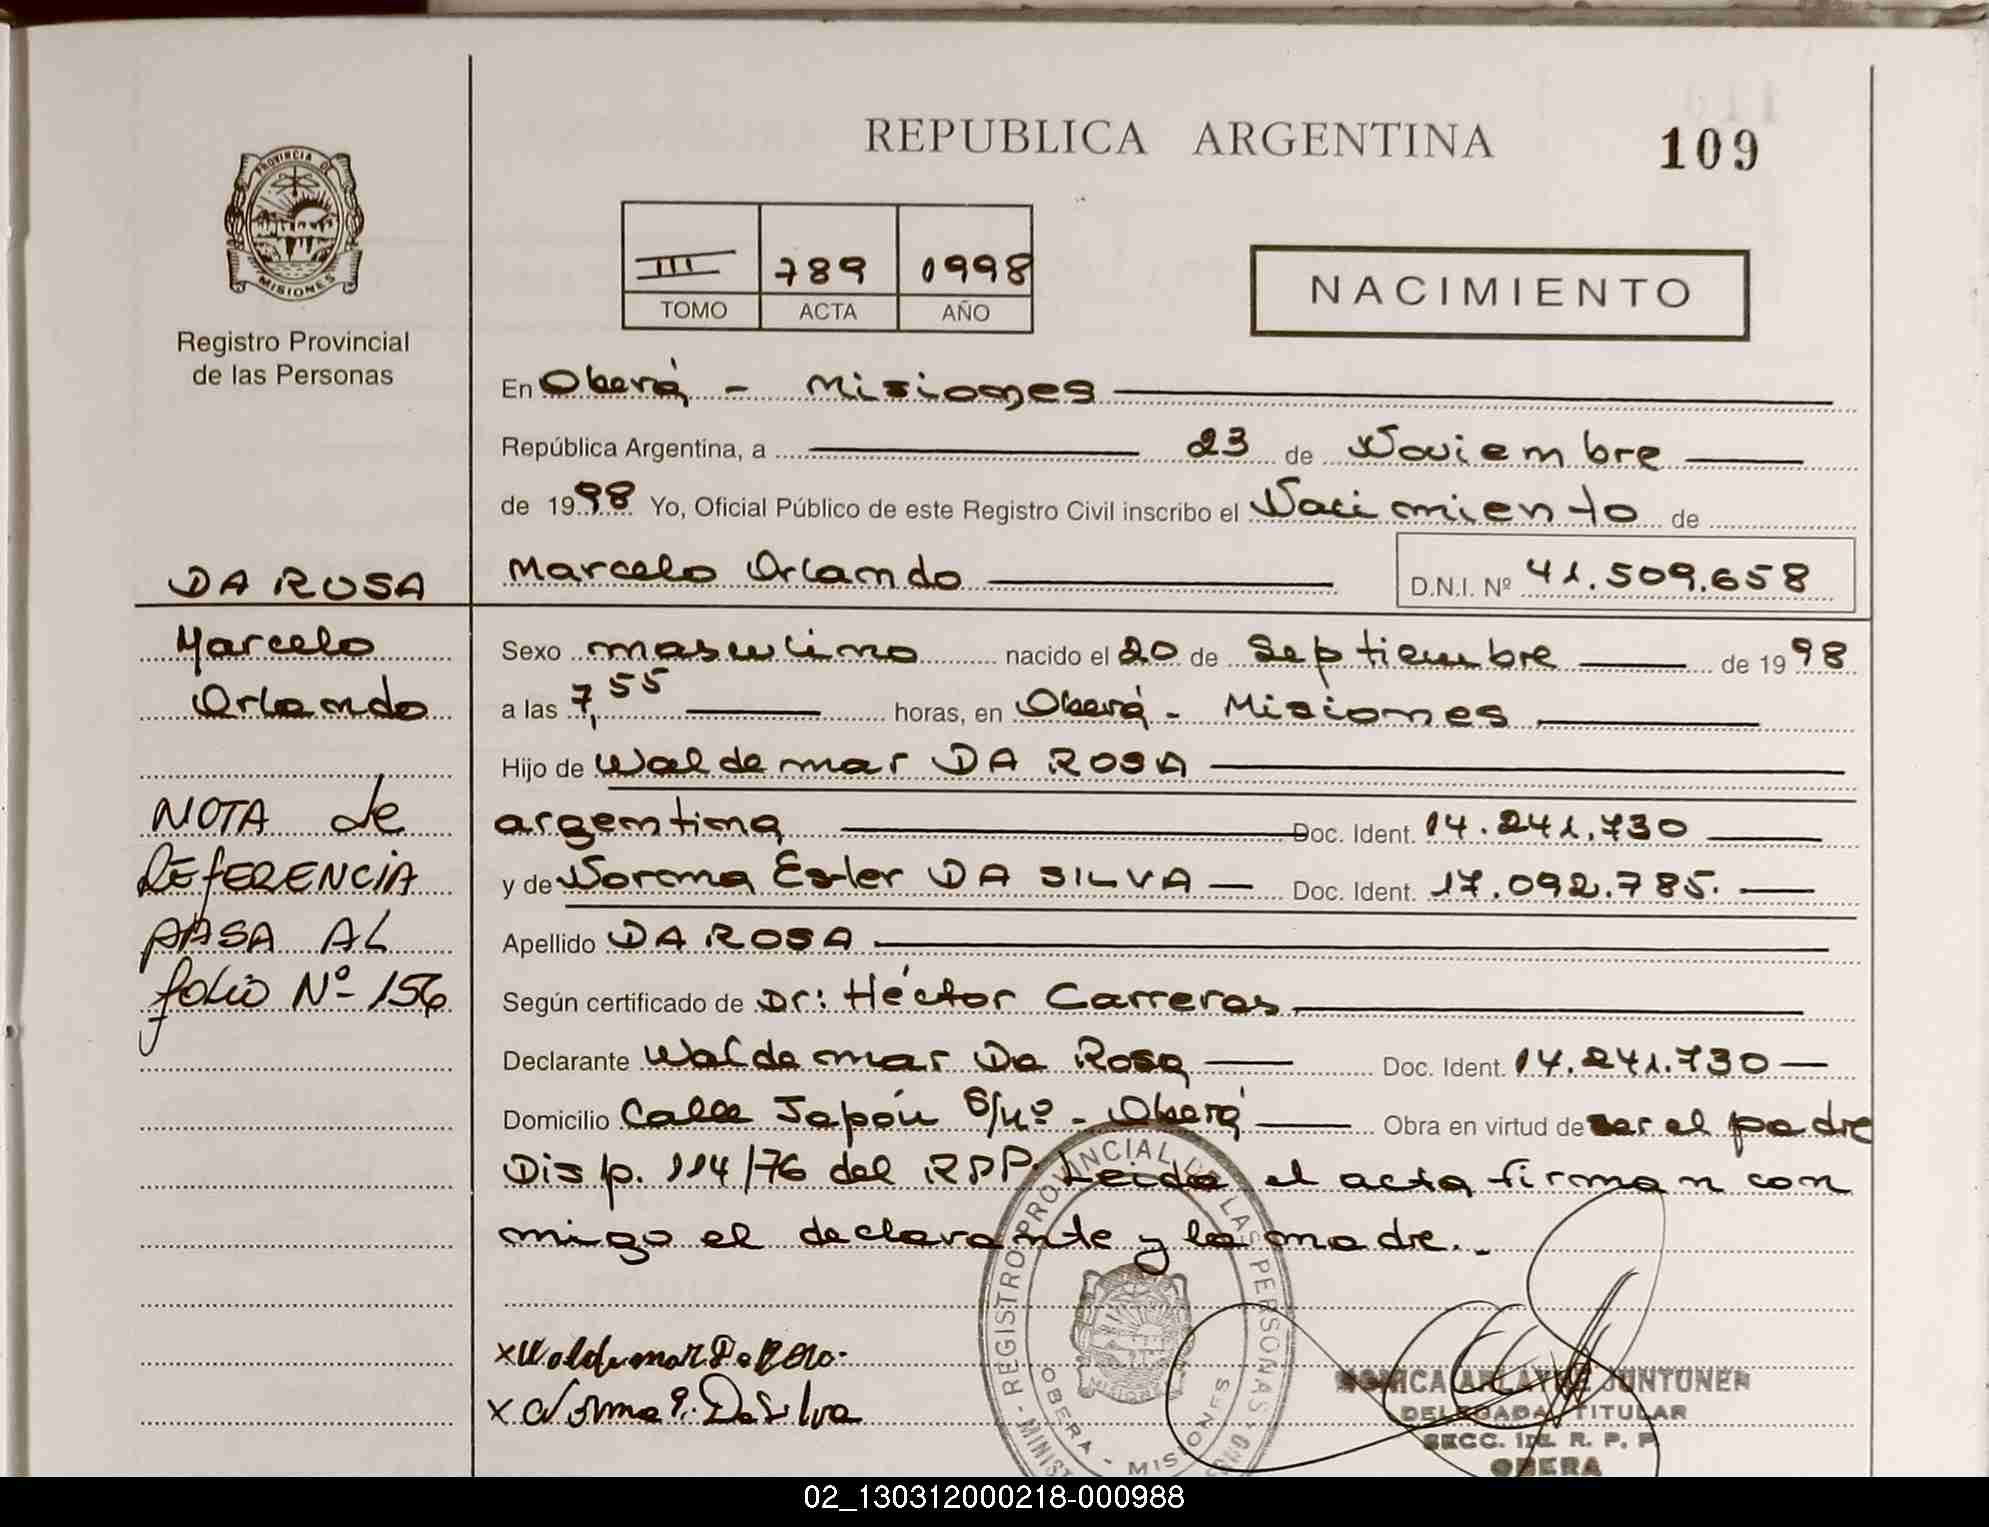 REPUBLICA ARGENTINA
109
PROVINCIA DE
MISIONES
Registro Provincial
de las Personas
III 789 1998
TOMO ACTA AÑO
NACIMIENTO
En Oberá - Misiones
República Argentina, a 23 de Noviembre
de 1998 Yo, Oficial Público de este Registro Civil inscribo el Nacimiento de
Marcelo Orlando D.N.I. Nº 41.509.658
DA ROSA
Marcelo
Orlando
NOTA de
REFERENCIA
PASA AL
folio Nº 156
Sexo masculino nacido el 20 de Septiembre de 1998
a las 7,55 horas, en Oberá - Misiones
Hijo de Waldemar DA ROSA
argentina Doc. Ident. 14.241.730
y de Norma Ester DA SILVA Doc. Ident. 17.092.785.
Apellido DA ROSA
Según certificado de Dr: Héctor Carreras
Declarante Waldemar Da Rosa Doc. Ident. 14.241.730
Domicilio Calle Japón S/Nº - Oberá Obra en virtud de ser el padre
Disp. 114/76 del RPP. Leida el acta firman con
migo el declarante y la madre.-
x Waldemar Da Rosa
x Norma E. Da Silva
REGISTRO PROVINCIAL DE LAS PERSONAS
OBERA - MISIONES
JUNTUNEN
DELEGADA TITULAR
SECC. R. P. P.
OBERA
02_130312000218-000988